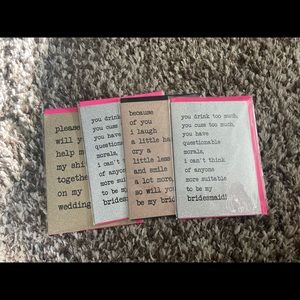 please
will yo
help m
my shi
togethe
on my
wedding
you drink too
you cuss too
you have
questionable
morals,
i can't
of anyone
more suit
to be my
bridesm
because
of you
i laugh
a little ha
cry a
little less
and smile
a lot more,
so will you
be my brid
you drink too much,
you cuss too much,
you have
questionable
morals,
i can't think
of anyone
more suitable
to be my
bridesmaid!